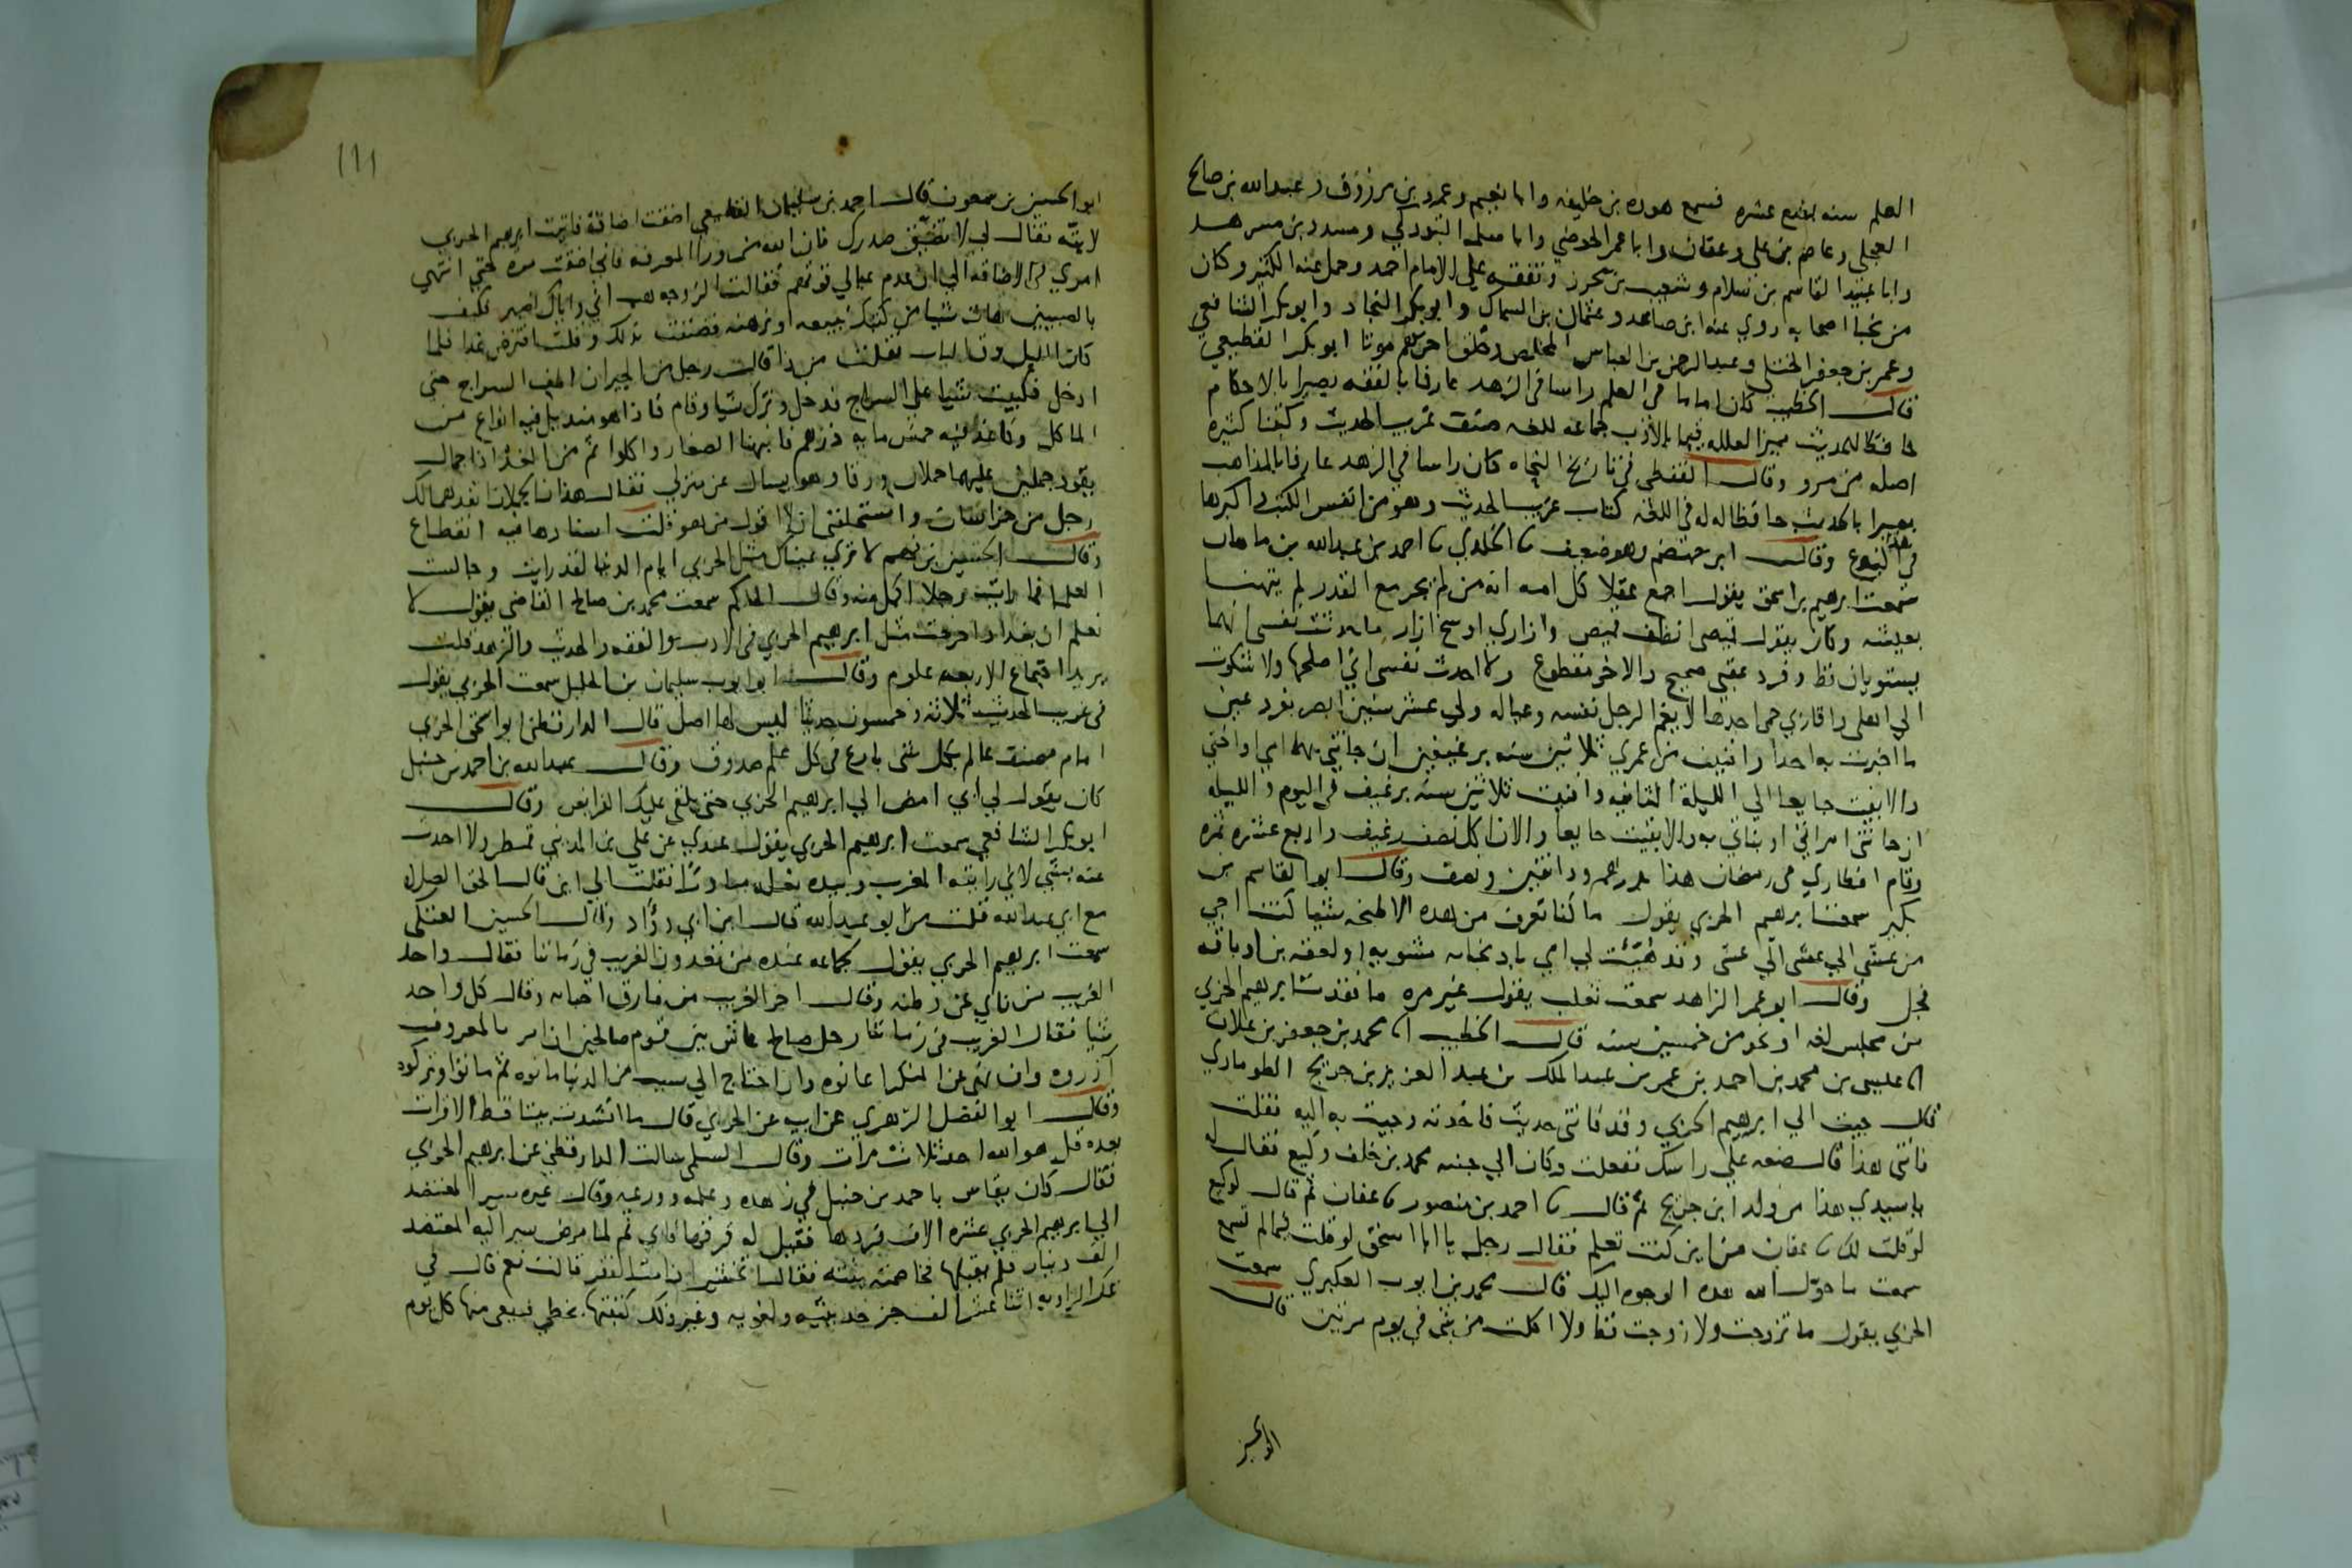 العلم سنه بضع عشره فسمع هوده بن خليفه وابا نعيم وعمرو بن مرزوق وعبدالله بن صالح
العجلي وعاصم بن علي وعفان وابا عمر الحوضي وابا سلمه التبوذكي ومسدد بن مسرهد
وابا عبيد القاسم بن سلام وشعيب بن محرز وتفقه علي الامام احمد وحمل عنه الكثير وكان
من نجبا اصحابه روي عنه ابن صاعد وعثمان بن السماك وابو بكر النجاد وابو بكر الشافعي
وعمر بن جعفر الختلي وعبد الرحمن بن العباس المخلص وخلق اخرهم موتا ابو بكر القطيعي
قال الخطيب كان اماما في العلم راسا في الزهد عارفا بالفقه بصيرا بالاحكام
حافظا للحديث مميزا لعلله قيما بالادب جماعه للغه صنف غريب الحديث وكتبا كثيره
اصله من مرو وقال القفطي في تاريخ النحاه كان راسا في الزهد عارفا بالمذاهب
بصيرا بالحديث حافظا له له في اللغه كتاب غريب الحديث وهو من انفس الكتب واكبرها
في هذا النوع وقال ابن مقسم وهو ضعيف ثنا الخلدي ثنا احمد بن عبدالله بن ماهان
سمعت ابرهيم بن اسحق يقول اجمع عقلا كل امه انه من لم يجر مع القدر لم يتهنا
بعيشه وكان يقول قميصي انظف قميص وازاري اوسخ ازار ما حدثت نفسي انهما
يستويان قط وفرد عقبي صحيح والاخر مقطوع ولا احدث نفسي اني اصلحها ولا شكوت
الي اهلي واقاربي حمى اجدها لا يغم الرجل نفسه وعياله ولي عشر سنين ابصر بفرد عين
ما اخبرت به احدا وافنيت من عمري ثلاثين سنه برغيفين ان جاتني بهما امي او اختي
والا بقيت جايعا الي الليلة الثانيه وافنيت ثلاثين سنه برغيف في اليوم والليله
ان جاتني امراتي او بناتي به والا بقيت جايعا والان اكل نصف رغيف واربع عشره تمره
وقام افطاري في رمضان هذا بدرهم ودانقين ونصف وقال ابو القاسم بن
بكير سمعت ابرهيم الحربي يقول ما كنا نعرف من هذه الاطبخه شيا كنت اجي
من عشي الي عشي وقد هيئت لي امي باذنجانه مشويه او لعقه بن او باقه
فجل وقال ابو عمر الزاهد سمعت ثعلب يقول غير مره ما فقدت ابرهيم الحربي
من مجلس لغه او نحو من خمسين سنه قال الخطيب انا محمد بن جعفر بن علان
انا عيسى بن محمد بن احمد بن عمر بن عبد الملك بن عبد العزيز بن جريج الطوماري
قال جيت الي ابرهيم الحربي وقد فاتني حديث فاخذته وجيت به اليه فقلت
فاتني هذا قال ضعه علي راسك ففعلت وكان الي جنبه محمد بن خلف وكيع فقال له
يا سيدي هذا من ولد ابن جريج ثم قال ثنا احمد بن منصور ثنا عفان ثم قال لوكيع
لو قلت لك ثنا عفان من اين كنت تعلم فقال رجل يا ابا اسحق لو قلت فيما لم تسمع
سمعت ما حول الله هذه الوجوه اليك قال محمد بن ايوب العكبري سمعت
الحربي يقول ما تزوجت ولا زوجت قط ولا اكلت من شي في يوم مرتين قال
ابو الحسين
١١١
ابو الحسين بن سمعون قال احمد بن سليمان القطيعي اضقت اضاقة فاتيت ابرهيم الحربي
لابثه فقال لي لا تضيق صدرك فان الله من ورا المعونه فاني اضقت مره حتي انتهي
امري في الاضاقه الي ان عدم عيالي قوتهم فقالت الزوجه هب اني واياك نصبر فكيف
بالصبيتين هات شيا من كتبك نبيعه او نرهنه فضننت بذلك وقلت اقترض غدا فلما
كان الليل دق الباب فقلت من ذا قال رجل من الجيران اطف السراج حتى
ادخل فكببت شيا علي السراج فدخل وترك شيا وقام فاذا هو منديل فيه انواع من
الماكل وكاغد فيه خمس مايه درهم فانبهنا الصغار واكلوا ثم من الغد اذا جمال
يقود جملين عليهما حملان ورقا وهو يسال عن منزلي فقال هذان الجملان انفذهما لك
رجل من خراسان واستحلفني ان لا اقول من هو قلت اسنادها فيه انقطاع
وقال الحسين بن فهم لا تري عيناك مثل الحربي ايام الدنيا لقد رايت وجالست
العلما فما رايت رجلا اكمل منه وقال الحاكم سمعت محمد بن صالح القاضي يقول لا
نعلم ان بغداد اخرجت مثل ابرهيم الحربي في الادب والفقه والحديث والزهد قلت
يريد اجتماع الاربعه علوم وقال ابو ايوب سليمان بن الخليل سمعت الحربي يقول
في غريب الحديث ثلاثه وخمسون حديثا ليس لها اصل قال الدارقطني ابو اسحق الحربي
امام مصنف عالم بكل شي بارع في كل علم صدوق وقال عبدالله بن احمد بن حنبل
كان يقول لي ابي امض الي ابرهيم الحربي حتى يلقي عليك الفرايض وقال
ابو بكر الشافعي سمعت ابرهيم الحربي يقول عندي عن علي بن المديني قمطر ولا احدث
عنه بشي لاني رايته المغرب وبيده نعله مبادرا فقلت الي اين قال الحق الصلاه
مع ابي عبد الله قلت من ابو عبد الله قال ابن ابي دؤاد وقال الحسين العتكي
سمعت ابرهيم الحربي يقول لجماعه عنده من تعدون الغريب في زماننا فقال واحد
الغريب من ناي عن وطنه وقال اخر الغريب من فارق احبابه وقال كل واحد
شيا فقال الغريب في زماننا رجل صالح عاش بين قوم صالحين ان امر بالمعروف
آزروه وان نهى عن المنكر اعانوه وان احتاج الي سبب من الدنيا مانوه ثم ماتوا وتركوه
وقال ابو الفضل الزهري عن ابيه عن الحربي قال ما انشدت بيتا قط الا قرات
بعده قل هو الله احد ثلاث مرات وقال السلمي سالت الدارقطني عن ابرهيم الحربي
فقال كان يقاس باحمد بن حنبل في زهده وعلمه وورعه وقال غيره سير المعتضد
الي ابرهيم الحربي عشره الاف فردها فقيل له فرقها فابي ثم لما مرض سير اليه المعتضد
الف دينار فلم يقبلها فخاصمته بنته فقال اتخشين اذا مت الفقر قالت نعم قال في
تلك الزاويه اثنا عشر الف جزء حديثيه ولغويه وغير ذلك كتبتها بخطي فبيعي منها كل يوم